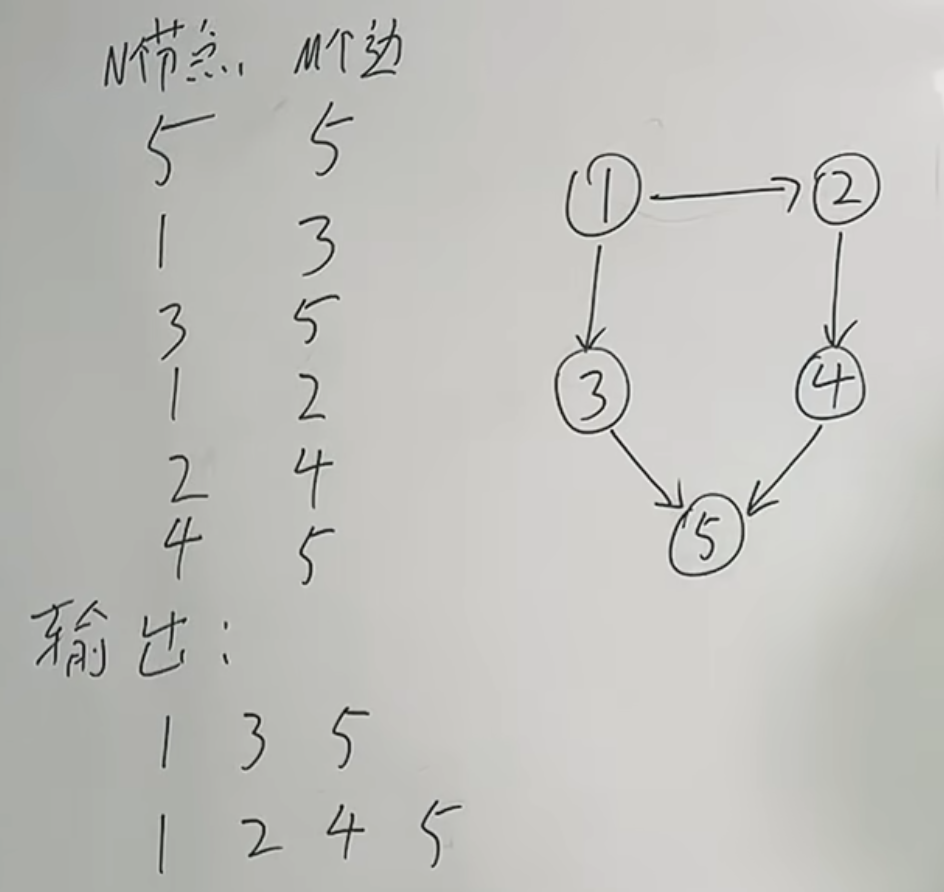 N个节点 M个边
5 5
1 3
3 5
1 2
2 4
4 5
输出：
1 3 5
1 2 4 5
1 2
3 4
5